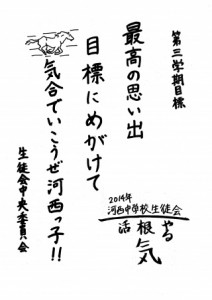 第三学期目標
最高の思い出
目標にめがけて
気合でいこうぜ河西っ子!!
生徒会中央委員会
2014年
河西中学校生徒会
やる
根気
活